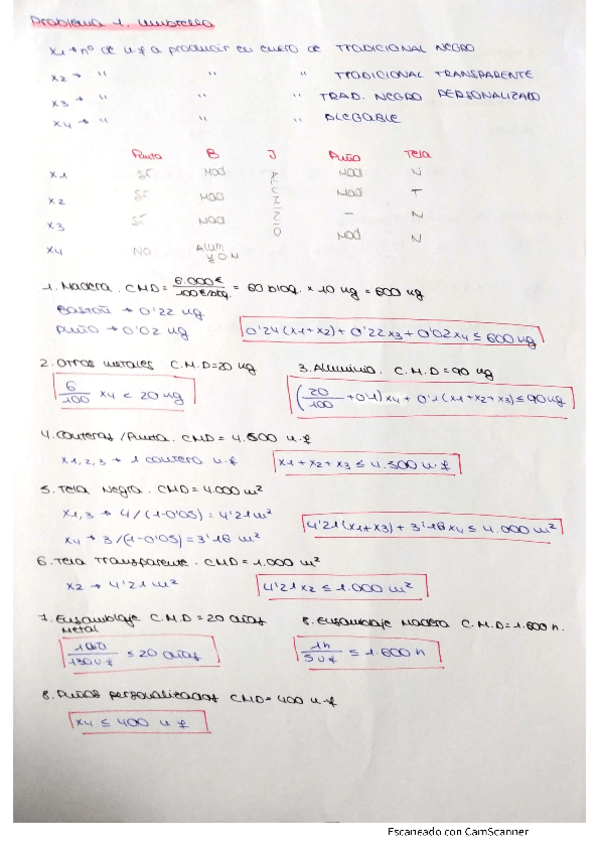 Problema 1. Umbrella
x1 → nº de u.f a producir en enero de TRADICIONAL NEGRO
x2 → " " " TRADICIONAL TRANSPARENTE
x3 → " " " TRAD. NEGRO PERSONALIZADO
x4 → " " " PLEGABLE
Punta B J Puño Tela
x1 SÍ MAD ALUMINIO MAD N
x2 SÍ MAD MAD T
x3 SÍ MAD - N
x4 NO Alum MAD N
1. Madera. CMD = 6.000€ / 100€/bloq. = 60 bloq. × 10 kg = 600 kg
Bastón → 0'22 kg
Puño → 0'02 kg
0'24 (x1+x2) + 0'22x3 + 0'02x4 ≤ 600 kg
2. Otros metales C.M.D=20 kg
6/100 x4 ≤ 20 kg
3. Aluminio. C.M.D = 90 kg
(20/100 + 0'1) x4 + 0'1 (x1+x2+x3) ≤ 90 kg
4. Conteras / Punta. CMD = 4.500 u.f
x1,2,3 → 1 contera u.f
x1 + x2 + x3 ≤ 4.500 u.f
5. Tela Negra. CMD = 4.000 m²
x1,3 → 4/(1-0'05) = 4'21 m²
x4 → 3/(1-0'05) = 3'16 m²
4'21 (x1+x3) + 3'16 x4 ≤ 4.000 m²
6. Tela Transparente. CMD = 1.000 m²
x2 → 4'21 m²
4'21 x2 ≤ 1.000 m²
7. Ensamblaje Metal C.M.D = 20 días
≤ 20 días
8. Ensamblaje Madera C.M.D = 1.600 h.
1h / 5 u.f ≤ 1.600 h
8. Puños personalizados CMD = 400 u.f
x4 ≤ 400 u.f
Escaneado con CamScanner